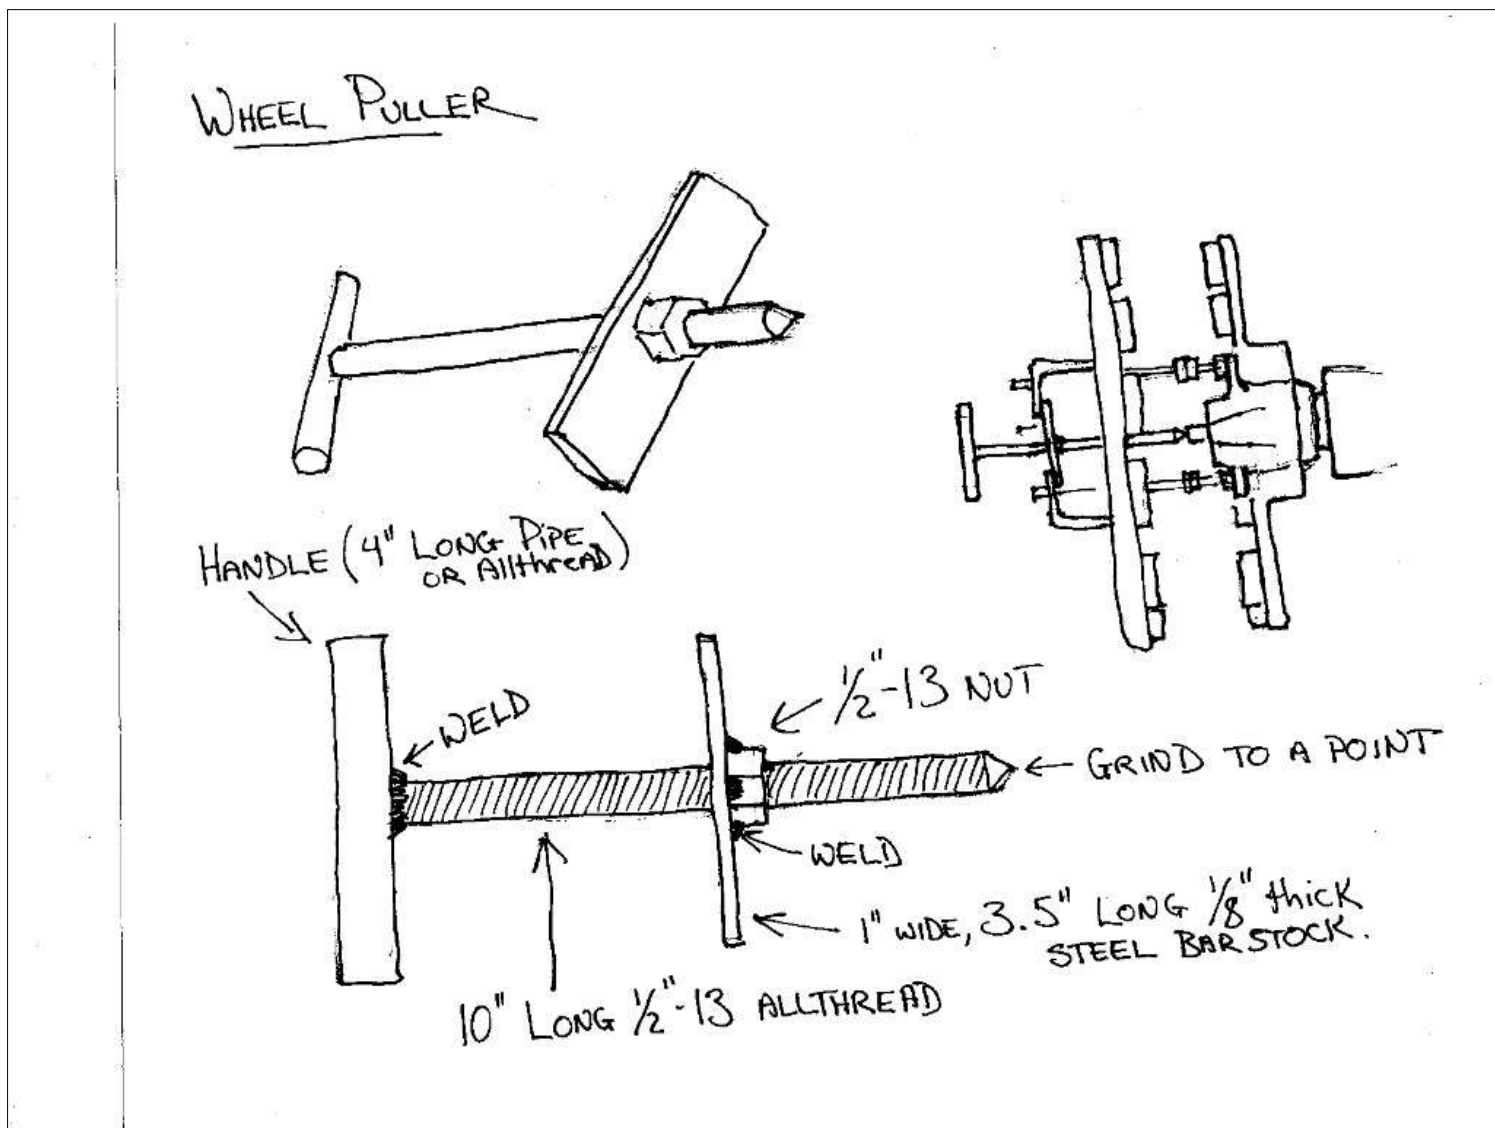 WHEEL PULLER
HANDLE (4" LONG PIPE
OR AllthreAD)
WELD
1/2"-13 NUT
GRIND TO A POINT
WELD
1" WIDE, 3.5" LONG 1/8" thick
STEEL BAR STOCK.
10" LONG 1/2"-13 ALLTHREAD